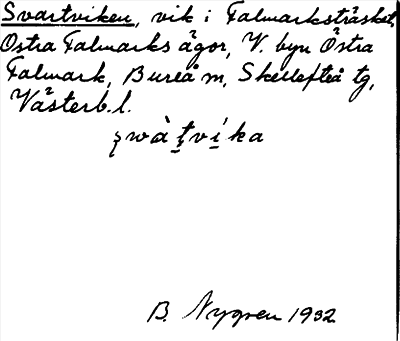 Svartviken, vik i Falmarksträsket,
Östra Falmarks ägor, V. byn Östra
Falmark, Bureå m, Skellefteå tg,
Västerb. l.
ʂwàt̠vi̠ka
B. Nygren 1932